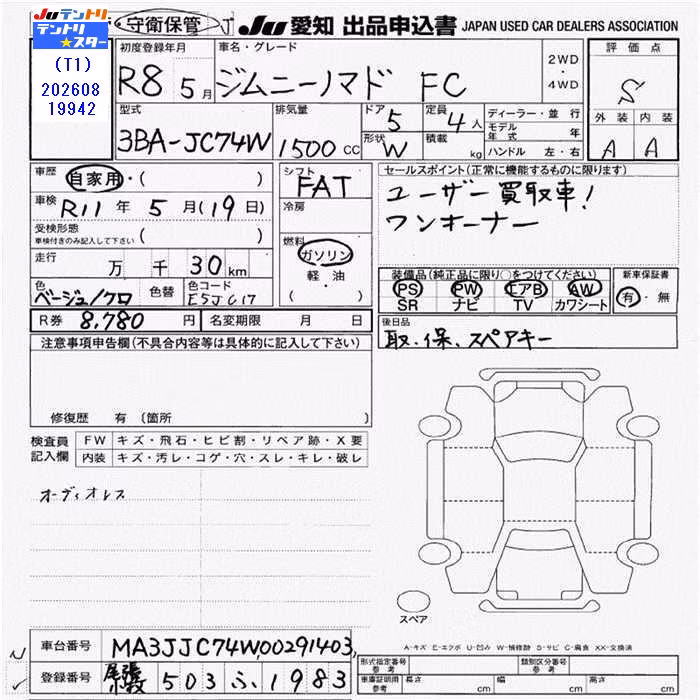 ・守衛保管 J JU 愛知 出品申込書 JAPAN USED CAR DEALERS ASSOCIATION
テントリ
テントリ★スター
(T1)
202608
19942
初度登録年月 車名・グレード 評価点
R8 5月 ジムニーノマド FC 2WD・4WD S
型式 排気量 ドア 5 定員 4人 ディーラー・並行 外装 内装
3BA-JC74W 1500cc 形状 W 積載 kg モデル年式 年 A A
ハンドル 左・右
車歴 自家用・( ) シフト FAT セールスポイント(正常に機能するものに限ります)
車検 R11年 5月(19日) 冷房 ユーザー買取車!
受検形態 ( ) ワンオーナー
車検付きのみ記入して下さい
燃料 ガソリン
走行 万 千 30km 軽・油
( )
装備品(純正品に限り○をつけてください) 新車保証書
PS PW エアB AW 有・無
SR ナビ TV カワシート
色 ベージュ/クロ 色替 色コード E5JC17
R券 8,780円 名変期限 月 日 後日品
取.保、スペアキー
注意事項申告欄(不具合内容等は具体的に記入して下さい)
修復歴 有 (箇所
検査員記入欄 FW キズ・飛石・ヒビ割・リペア跡・X要
内装 キズ・汚レ・コゲ・穴・スレ・キレ・破レ
オーディオレス
スペア
A-キズ E-エクボ U-凹み W-補修跡 S-サビ C-腐食 XX-交換済
車台番号 MA3JJC74W00291403
登録番号 尾張小牧 503 ふ 1983
形式指定番号 参考 類別区分番号 参考
車庫証明用 参考 長さ cm 幅 cm 高さ cm